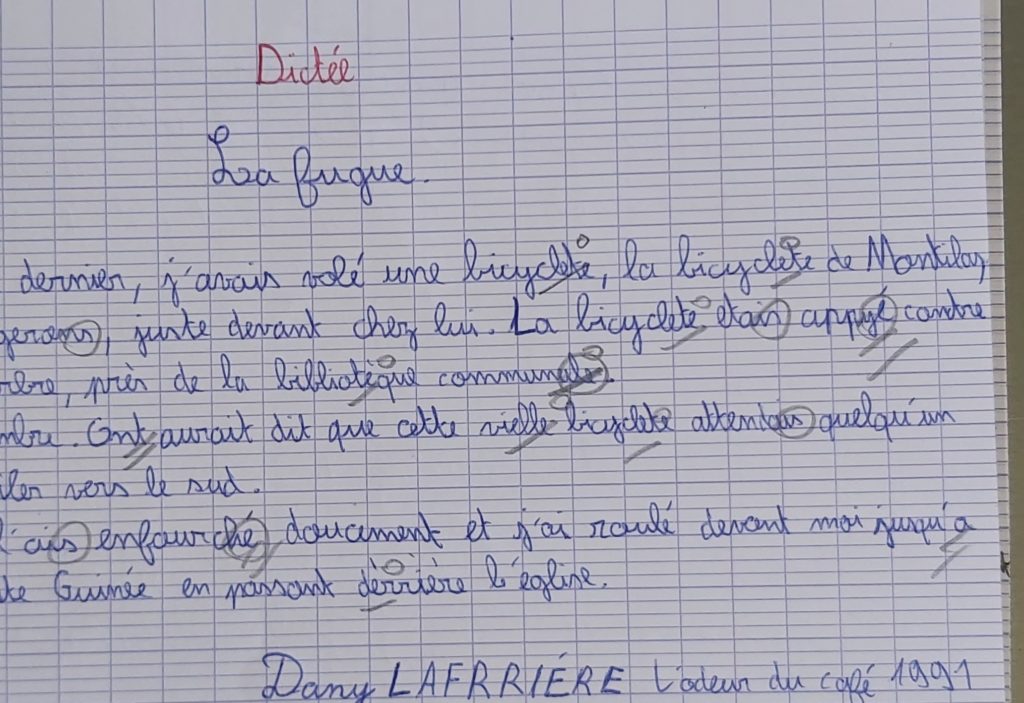 Dictée
La fugue.
dernier, j'avais volé une bicyclete, la bicyclete de Montilas,
gerons, juste devant chez lui. La bicyclete étais appuyé contre
près de la bibliotèque communale.
Ont aurait dit que cette vielle bicyclete attendais quelqu'un
iler vers le sud.
l'ais enfourché doucement et j'ai roulé devant moi jusqu'a
te Guinée en passant dèrrière l'église.
Dany LAFRRIÉRE L'odeur du café 1991